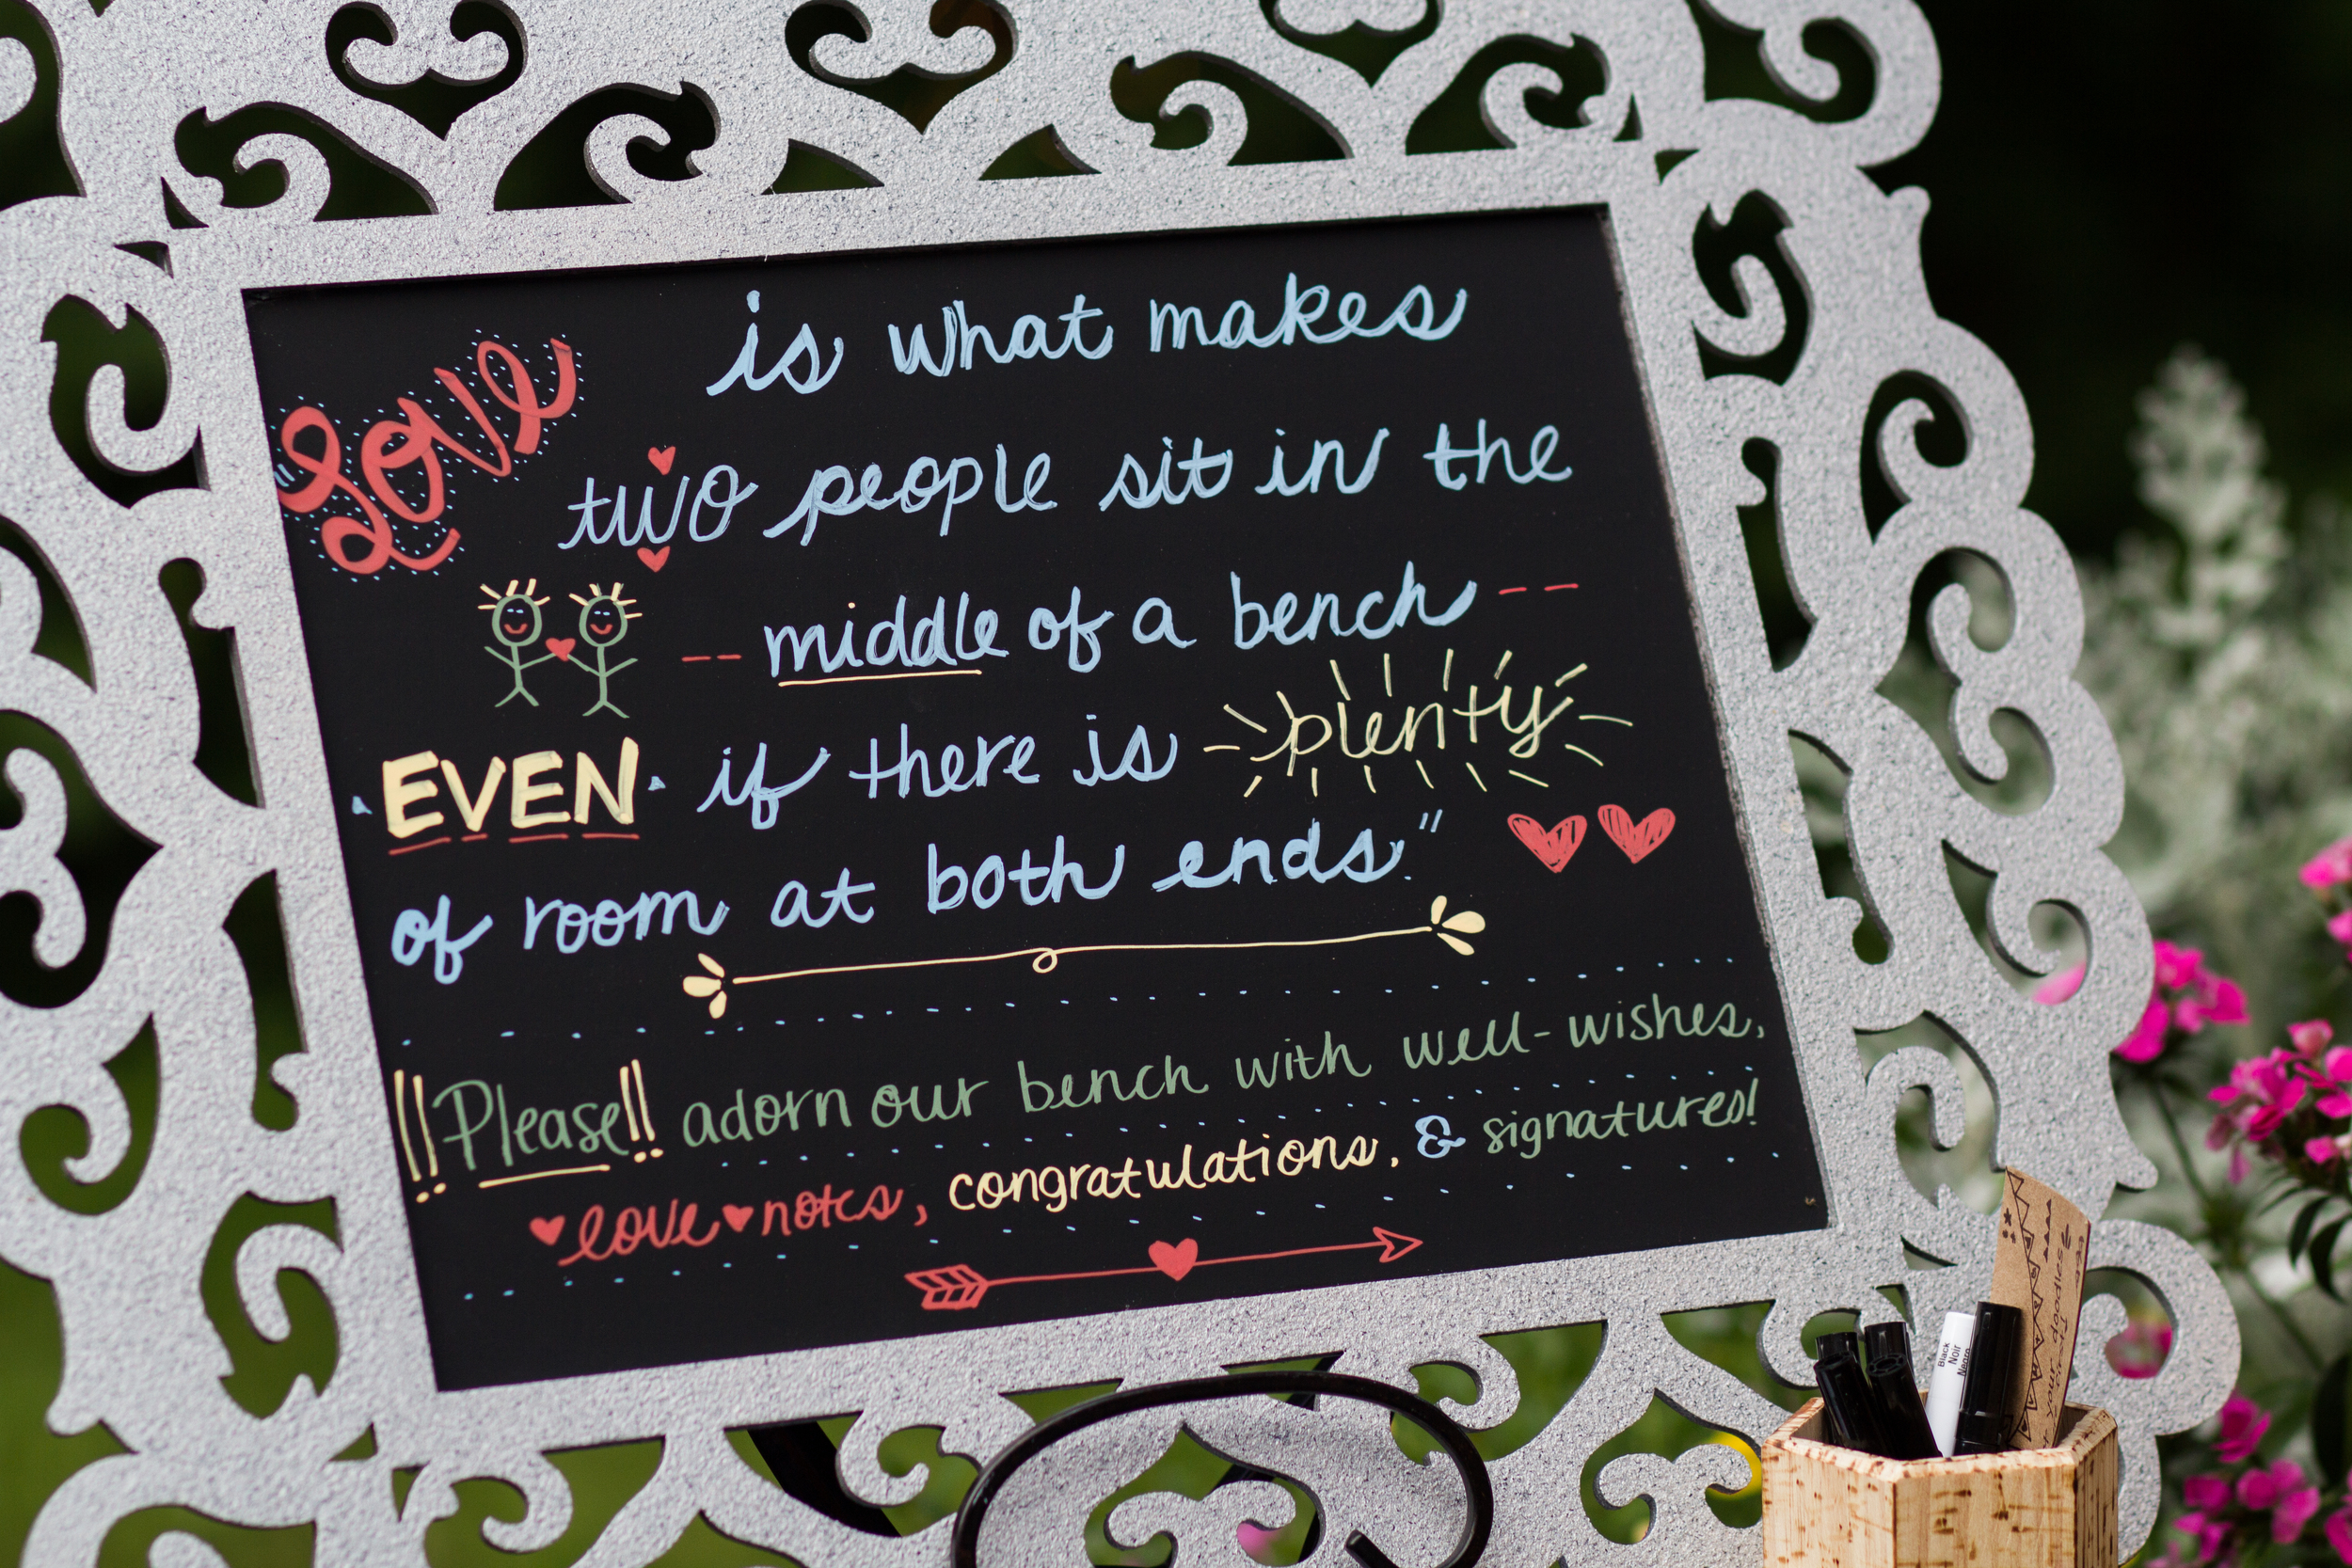 "Love is what makes
two people sit in the
-- middle of a bench --
·EVEN· if there is plenty
of room at both ends."
!!Please!! adorn our bench with well-wishes,
♥love♥notes, congratulations, & signatures!
Black
Noir
Negro
your doodles